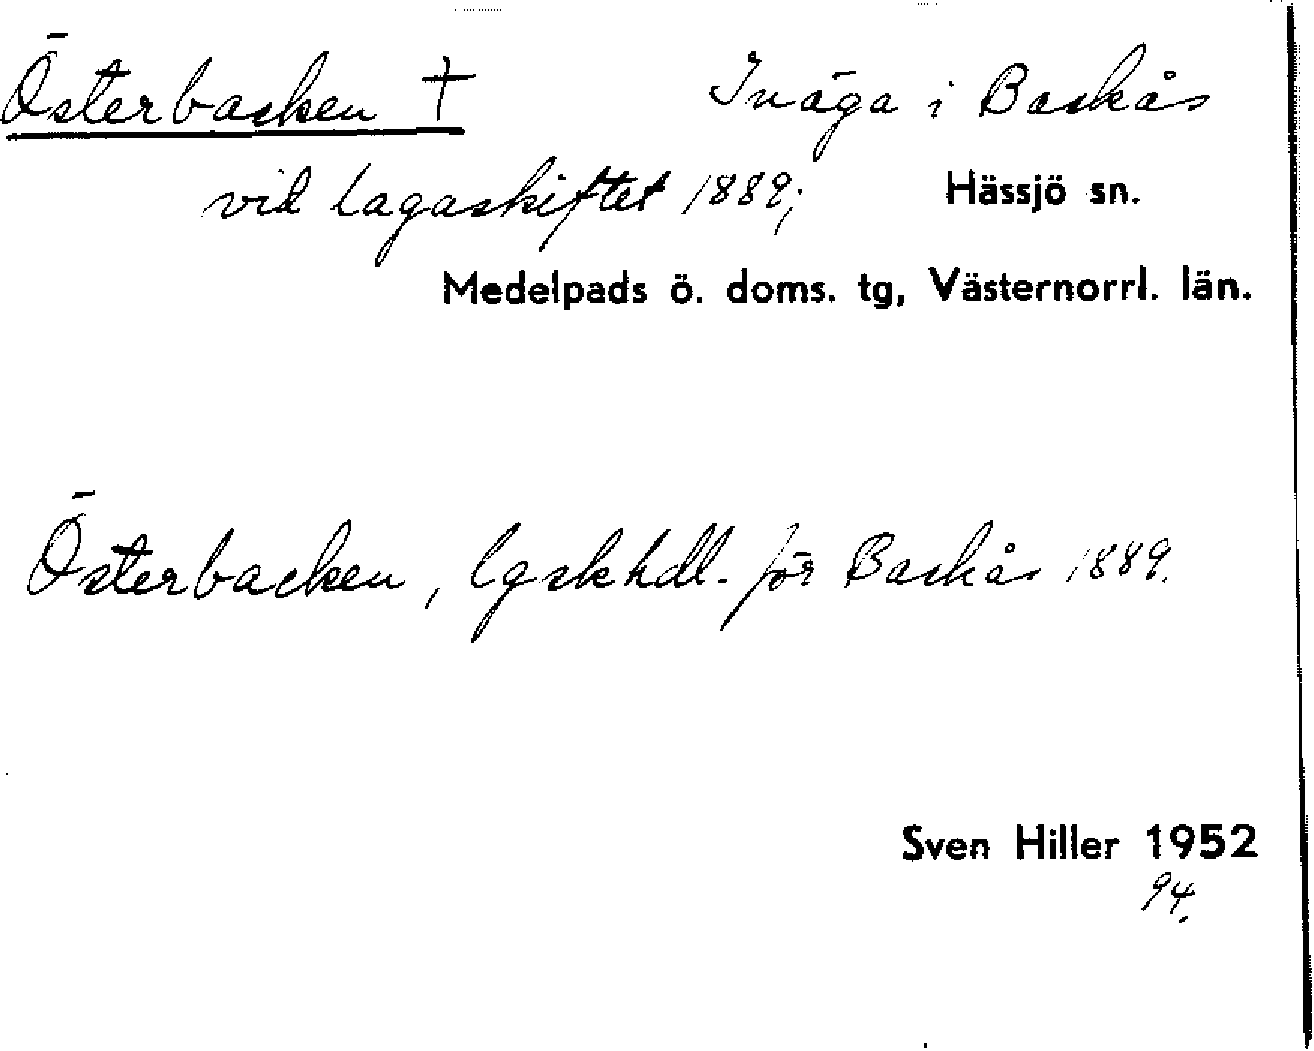 Österbacken † Inäga i Backås
vid lagaskiftet 1889; Hässjö sn.
Medelpads ö. doms. tg, Västernorrl. län.
Österbacken, lgskhdl. för Backås 1889.
Sven Hiller 1952
94.